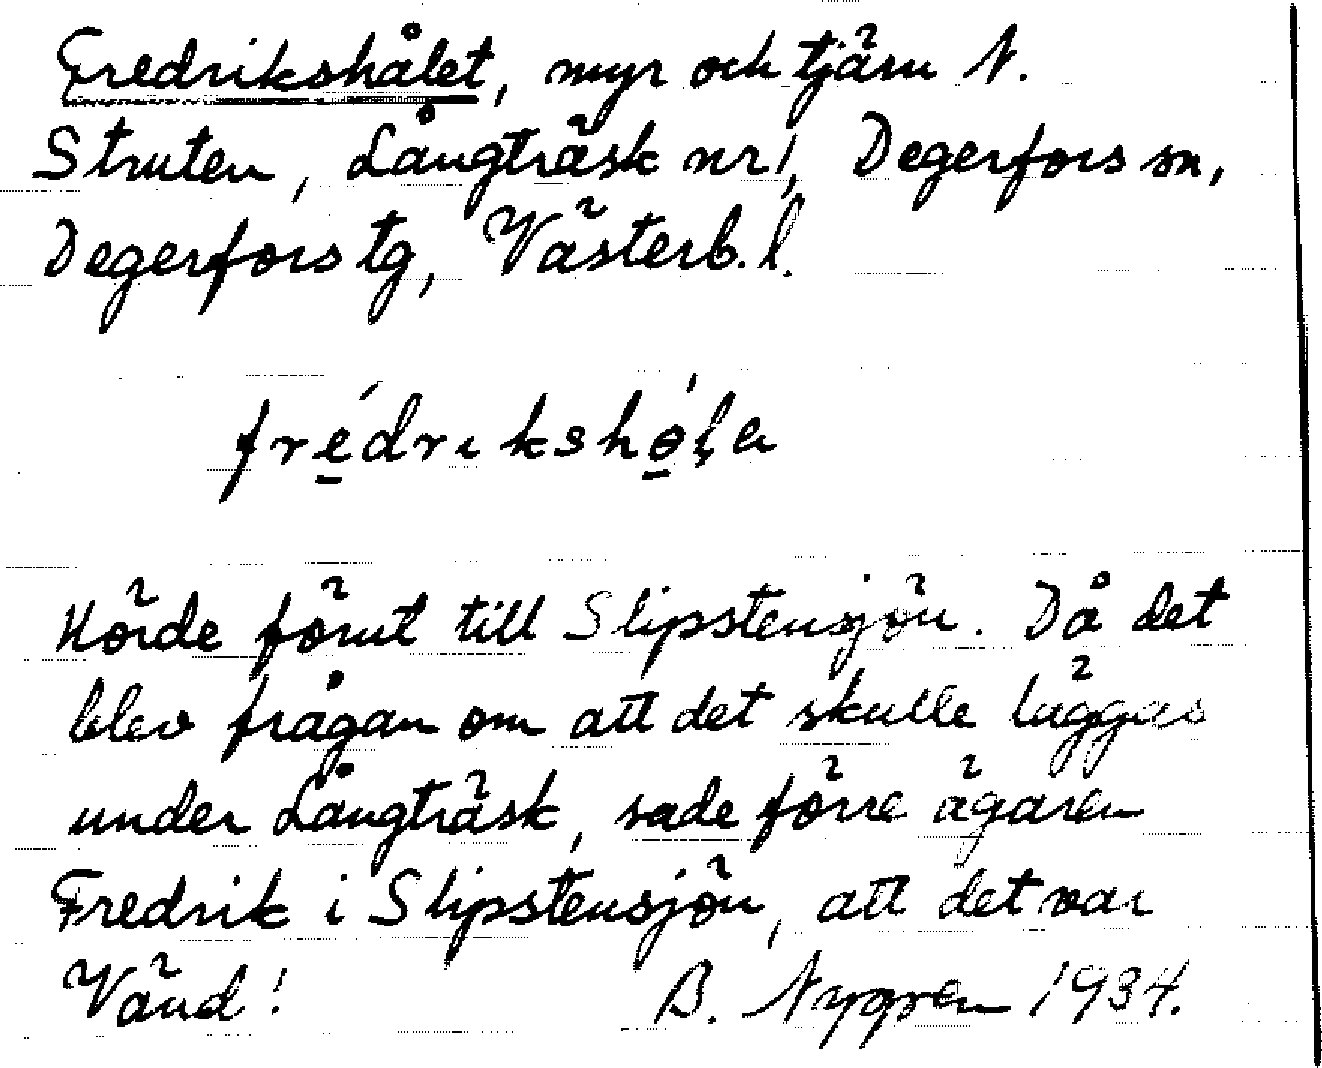 Fredrikshålet, myr och tjärn N.
Struten, Långträsk nr 1, Degerfors sn,
Degerfors tg, Västerb. l.
fré̲drıkshó̲ļa
Hörde förut till Slipstensjön. Då det
blev frågan om att det skulle läggas
under Långträsk, sade förre ägaren
Fredrik i Slipstensjön, att det var
Vänd! B. Nygren 1934.